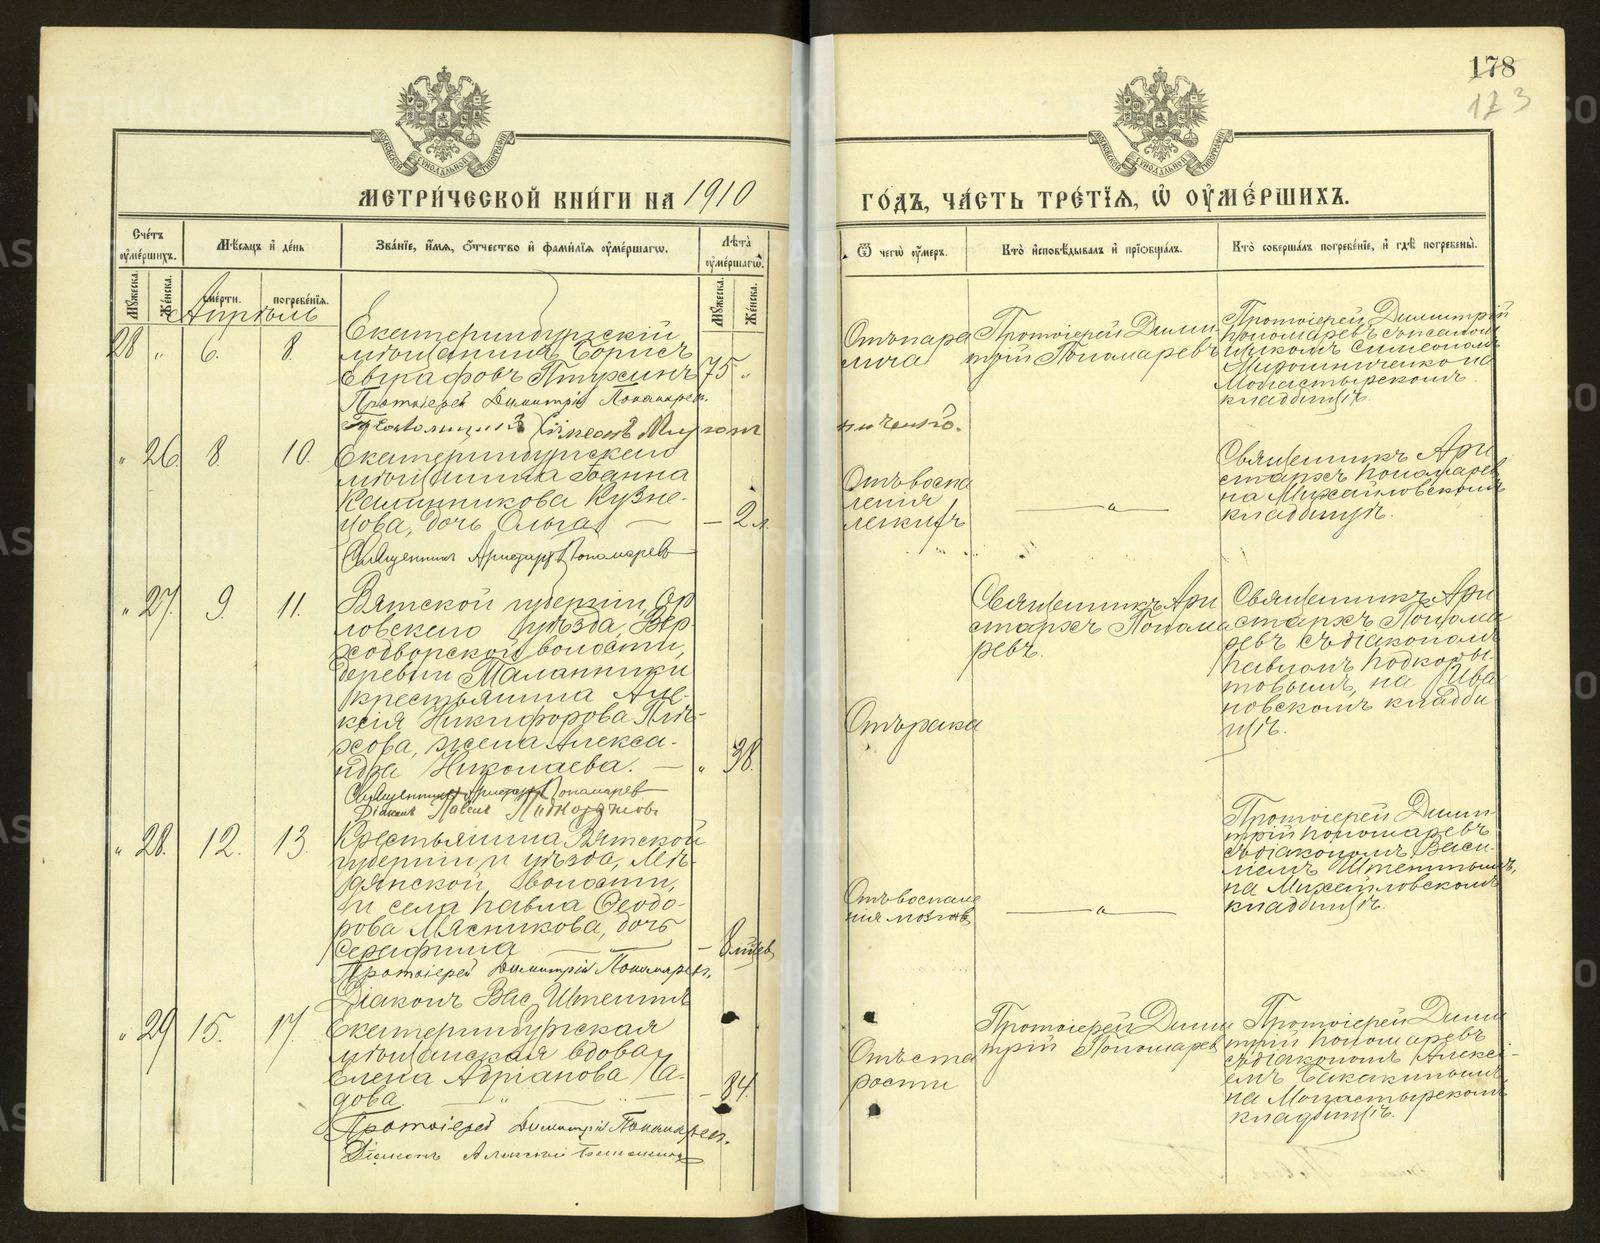 178
173
МЕТРИ́ЧЕСКОЙ КНИ́ГИ НА 1910
ГО́ДЪ, ЧА́СТЬ ТРЕ́ТІѦ, Ѽ ОУМЕ́РШИХЪ.
Сче́тъ оуме́ршихъ.
Мѣ́сяцъ и҆ де́нь
Зва́нїе, и҆́мѧ, ѻ҆́тчество и҆ фами́лїѧ оуме́ршагѡ.
Лѣ́та оуме́ршагѡ.
Ѿ чегѡ̀ оу́меръ.
Кто̀ и҆сповѣ́дывалъ и҆ прїѻбща́лъ.
Кто̀ соверша́лъ погребе́нїе, и҆ гдѣ̀ погребены̀.
Мꙋ́жеска.
Же́нска.
сме́рти.
погребе́нїѧ.
Мꙋ́жеска.
Же́нска.
Апрѣль
28 „ 6. 8.
Екатеринбургскій
мѣщанинъ Борисъ
Евграфовъ Птухинъ 75 „
Протоіерей Димитрій Пономарев.
Псаломщикъ Симеонъ Мирошниченко.
Отъ пара
лича
Протоіерей Дими
трій Пономаревъ
Протоіерей Димитрій
Пономаревъ съ псалом
щикомъ Симеономъ
Мирошниченко на
Монастырскомъ
кладбищѣ.
„ 26. 8. 10.
Екатеринбургскаго
мѣщанина Іоанна
Калинникова Кузне-
цова, дочь Ольга — — 2 л.
Священникъ Аристархъ Пономаревъ
Отъ воспа
ленія
легкихъ
— „ —
Священникъ Ари
стархъ Пономаревъ
на Михайловскомъ
кладбищѣ.
„ 27. 9. 11.
Вятской губерніи, Ор
ловскаго уѣзда, Вер-
ходворской волости,
деревни Маланники
крестьянина Але-
ксія Никифорова Плѣ-
хова, жена Алекса-
ндра Николаева. — „ 38.
Священникъ Аристархъ Пономарев
Діаконъ Павелъ Подкорытовъ
Отъ рака
Священникъ Ари
стархъ Понома
ревъ.
Священникъ Ари
стархъ Понома
ревъ съ діакономъ
Павломъ Подкоры-
товымъ, на Ива
новскомъ кладби-
щѣ.
„ 28. 12. 13.
Крестьянина Вятской
губерніи и уѣзда, Мѣ-
дянской волости,
и села Павла Ѳеодо-
рова Мясникова, дочь
Серафима — 8 мѣсяцев
Протоіерей Димитрій Пономарев.
Діаконъ Вас. Штенинъ
Отъ воспале
нія мозгов
— „ —
Протоіерей Дими
трій Пономаревъ
съ діакономъ Васи-
ліемъ Штенинымъ,
на Михайловскомъ
кладбищѣ.
„ 29 15. 17.
Екатеринбургская
мѣщанская вдова
Елена Адріанова Ча-
дова. — „ — — 84.
Протоіерей Димитрій Пономарев.
Діаконъ Алексій Бакакинъ
Отъ ста
рости
Протоіерей Дими
трій Пономарев
Протоіерей Дими
трій Пономаревъ
съ діакономъ Алексі-
емъ Бакакинымъ
на Монастырскомъ
кладбищѣ.